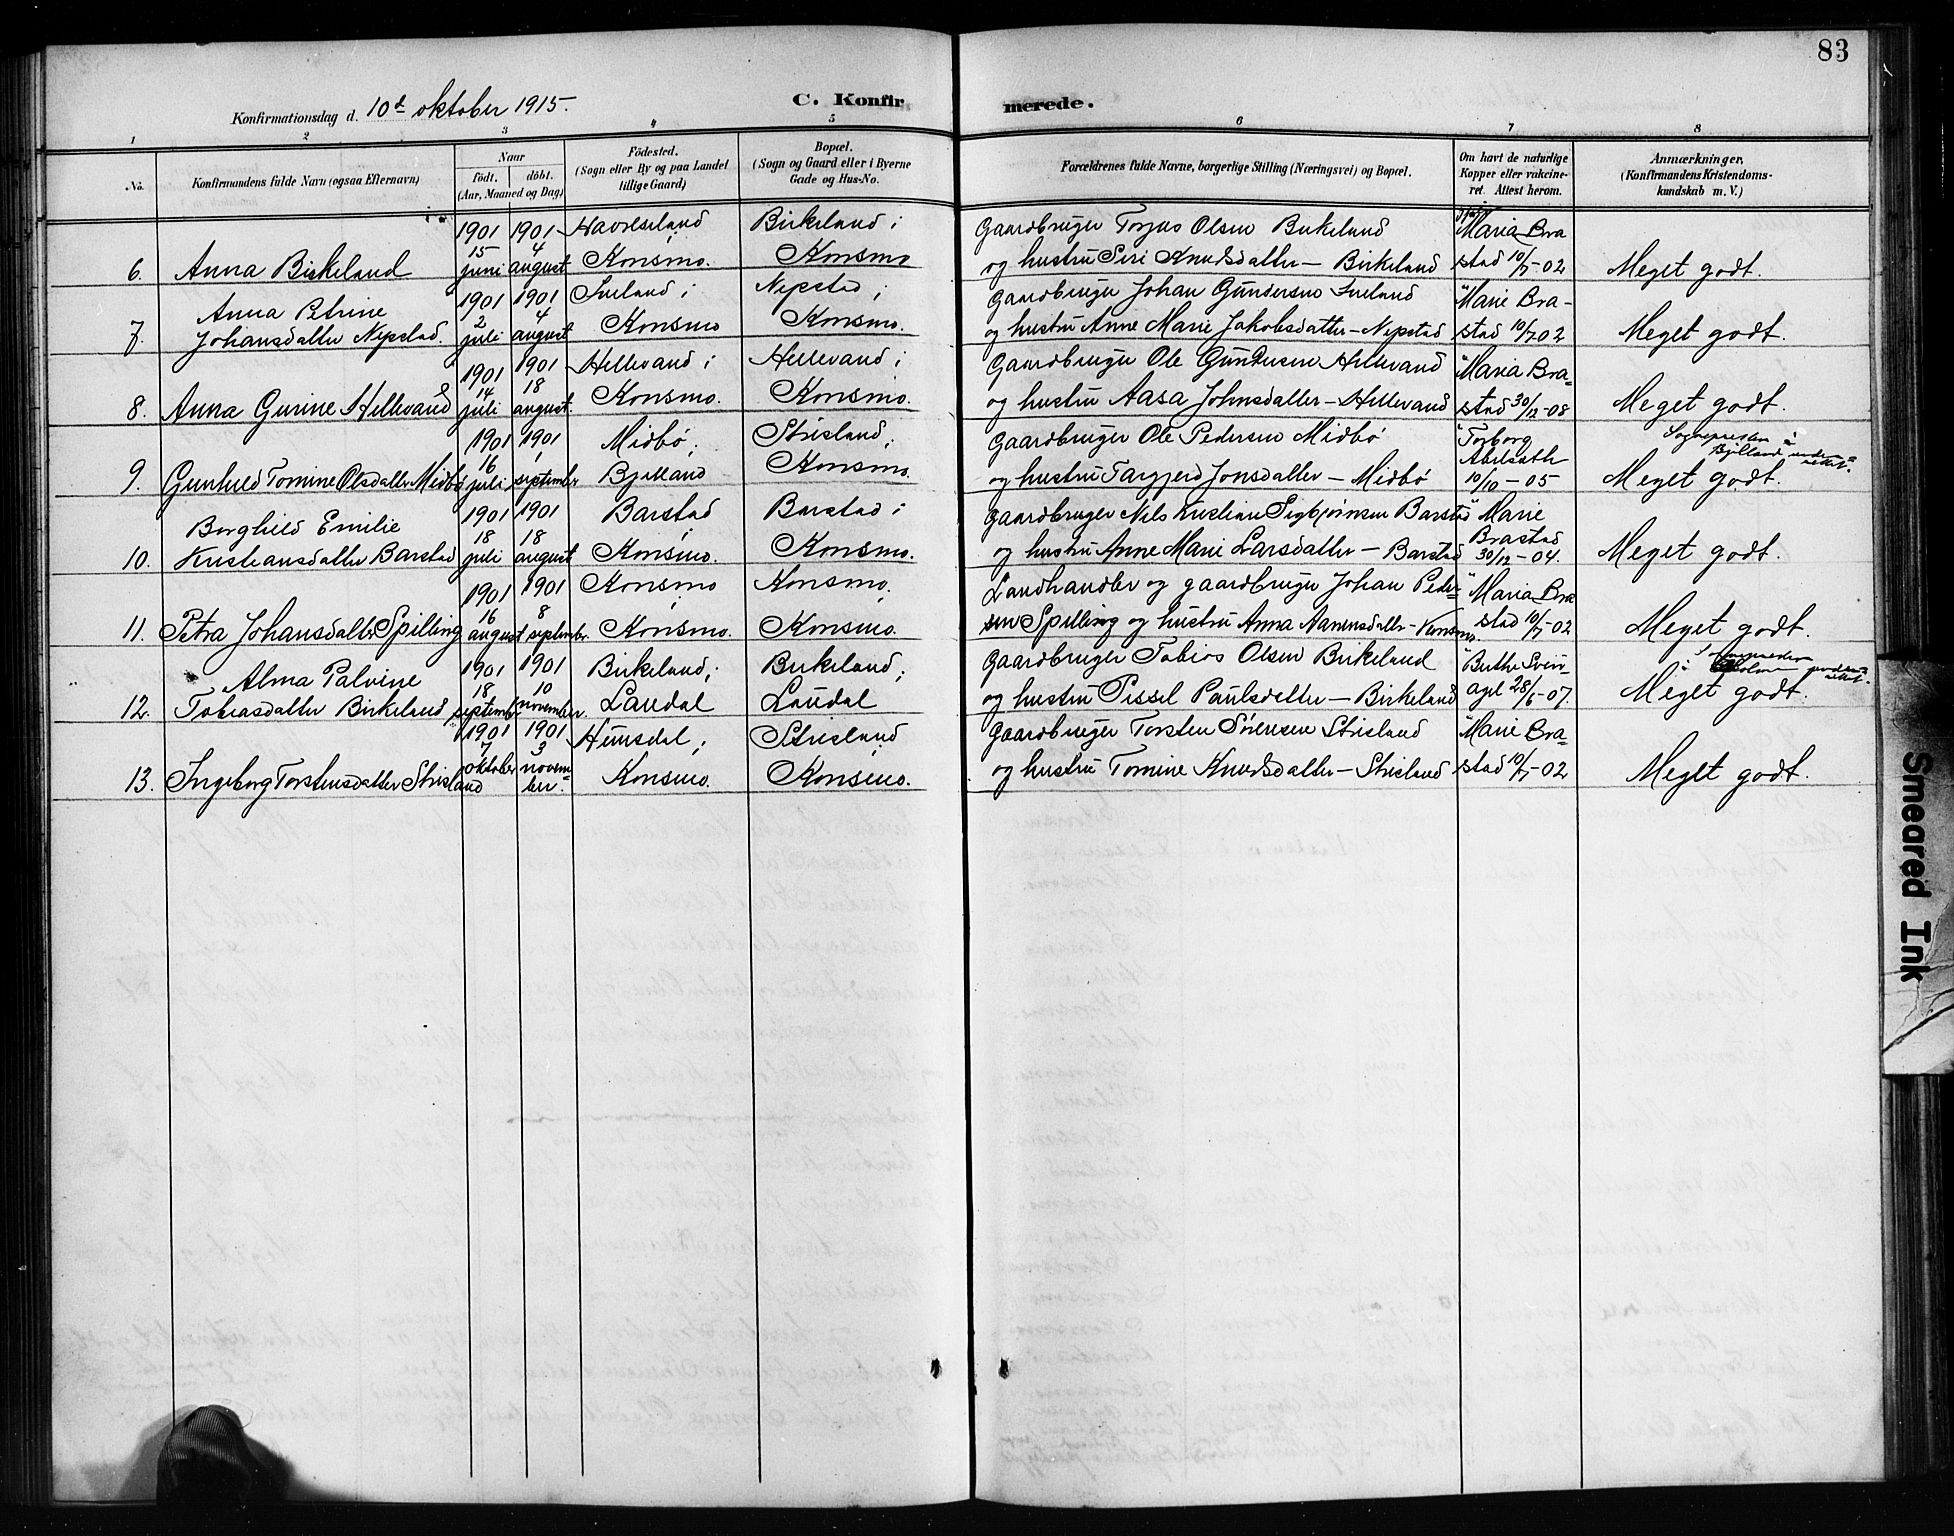 83
Konfirmationsdag d. 10d oktober 1915.
C. Konfirmerede.
1 2 3 4 5 6 7 8
No.
Konfirmandens fulde Navn (ogsaa Efternavn)
Naar
födt. döbt.
(Aar, Maaned og Dag)
Födested.
(Sogn eller By og paa Landet
tillige Gaard)
Bopæl.
(Sogn og Gaard eller i Byerne
Gade og Hus-No.
Forældrenes fulde Navne, borgerlige Stilling (Næringsvei) og Bopæl.
Om havt de naturlige
Kopper eller vakcine-
ret. Attest herom.
Anmærkninger,
(Konfirmandens Kristendoms-
kundskab m. V.)
6. Anna Birkeland
1901 15 juni
1901 4 august
Havreseland i
Konsmo.
Birkeland i
Konsmo
Gaardbruger Torjus Olsen Birkeland
og hustru Siri Knudsdatter – Birkeland
Maria Bra
stad 10/7-02
Meget godt.
7. Anna Petrine
Johansdatter Nepstad.
1901 2 juli
1901 4 august
Iveland i
Konsmo
Nepstad i
Konsmo.
Gaardbruger Johan Gundersen Iveland
og hustru Anne Marie Jakobsdatter – Nepstad
"Marie Bra-
stad 10/7-02
Meget godt.
8. Anna Gurine Hellevand
1901 14 juli
1901 18 august.
Hellevand i
Konsmo.
Hellevand i
Konsmo.
Gaardbruger Ole Gundersen Hellevand
og hustru Aasa Johnsdatter – Hellevand
"Maria Bra=
stad 30/12-08
Meget godt.
9. Gunhild Tomine Olsdatter Midbö
1901 16 juli
1901 1 september
Midbö;
Bjelland
Strisland;
Konsmo.
Gaardbruger Ole Pedersen Midbö
og hustru Targjerd Jonsdatter – Midbö
"Torborg
Abelseth
10/10-05
Sognepresten i
Bjelland under=
rettet.
Meget godt.
10. Borghild Emilie
Kristiansdatter Barstad
1901 18 juli
1901 18 august
Barstad
Konsmo.
Barstad i
Konsmo.
Gaardbruger Nils Kristian Sigbjörnsen Barstad
og hustru Anne Marie Larsdatter – Barstad
"Marie
Brastad
30/12-04.
Meget godt.
11. Petra Johansdatter Spilling
1901 16 august
1901 8 september.
Konsmo
i
Konsmo.
Konsmo
i
Konsmo.
Landhandler og gaardbruger Johan Peder-
sen Spilling og hustru Anna – Konsmo.
"Maria Bra
stad 10/7-02
Meget godt.
12. Alma Palvine
Tobiasdatter Birkeland
1901 18 september
1901 10 november.
Birkeland;
Laudal
Birkeland;
Laudal
Gaardbruger Tobias Olsen Birkeland
og hustru Sissel Paulsdatter – Birkeland
28/6-07.
i Holum under=
rettet.
Meget godt.
13. Ingeborg Torstensdatter Strisland
1901 7 oktober
1901 3 novem=
ber.
Hunsdal;
Konsmo.
Strisland
i
Konsmo.
Gaardbruger Torsten Sörensen Strisland
og hustru Tomine Knudsdatter – Strisland
"Marie Bra=
stad 10/7-02
Meget godt.
Smeared Ink